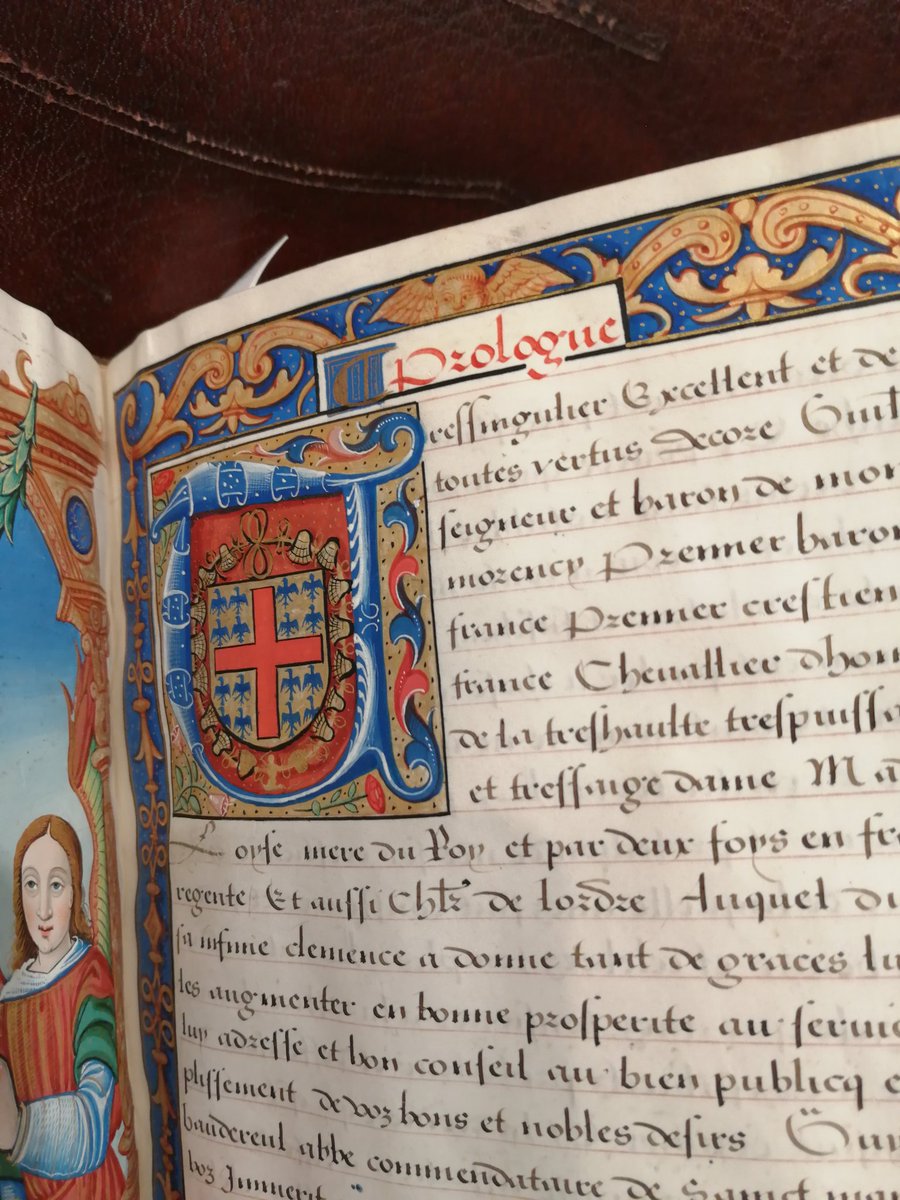 Prologue
Tressingulier Excellent et de
toutes vertus decore Guil
seigneur et baron de mon
morency Premier baron
france Premier crestien
france Chevallier dhon
de la treshaulte trespuissa
et tressaige dame Ma
Loyse mere du Roy et par deux foys en fr
regente Et aussi Chlr de lordre Auquel di
sa infinie clemence a donne tant de graces
les augmenter en bonne prosperite au servic
luy adresse et bon conseil au bien publicq e
plissement de voz bons et nobles desirs
baudereul abbe commendataire de Sainct
voz